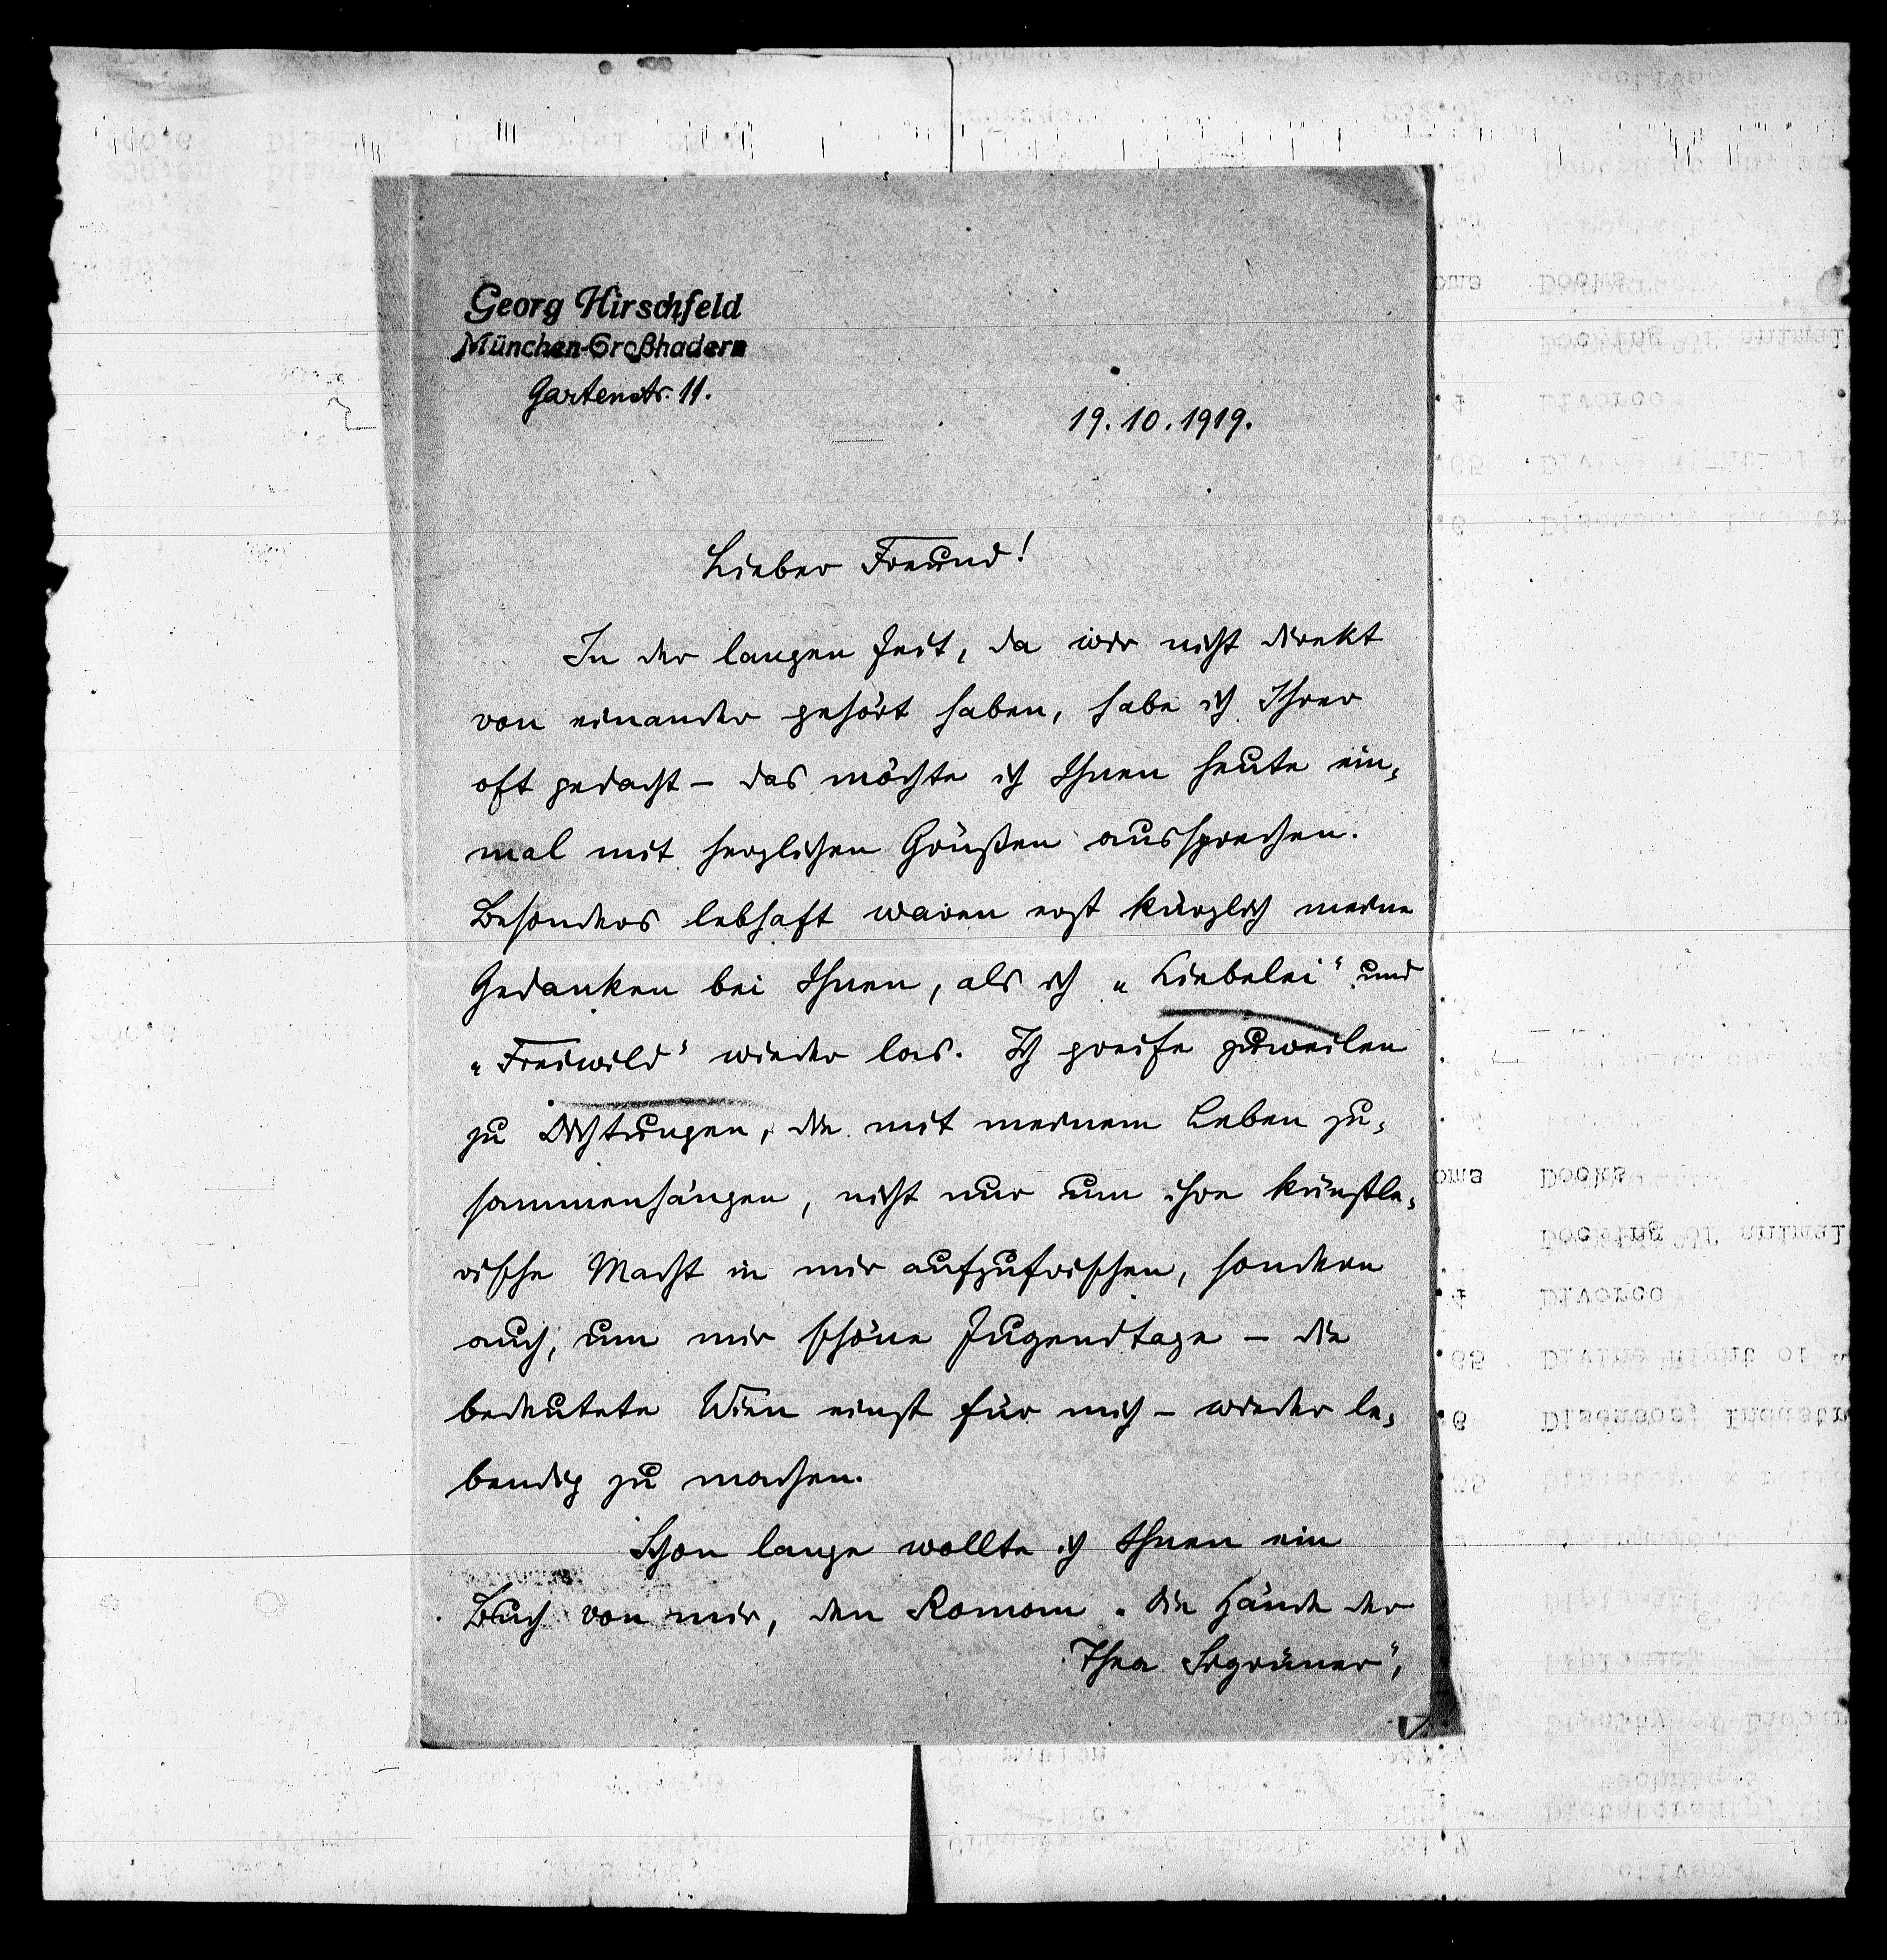 Georg Hirschfeld
München-Großhadern
Gartenstr. 11.
19.10.1919.
Lieber Freund!
In der langen Zeit, da wir nicht direkt
von einander gehört haben, habe ich Ihrer
oft gedacht – das möchte ich Ihnen heute ein-
mal mit herzlichen Grüßen aussprechen.
Besonders lebhaft waren erst kürzlich meine
Gedanken bei Ihnen, als ich „Liebelei" und
„Freiwild" wieder las. Ich greife zuweilen
zu Dichtungen, die mit meinem Leben zu-
sammenhängen, nicht nur um ihre künstle-
rische Macht in mir aufzufrischen, sondern
auch, um mir schöne Jugendtage – die
bedeutete Wien einst für mich – wieder le-
bendig zu machen.
Schon lange wollte ich Ihnen ein
Buch von mir, den Roman „Die Hände der
Thea Sigrüner",